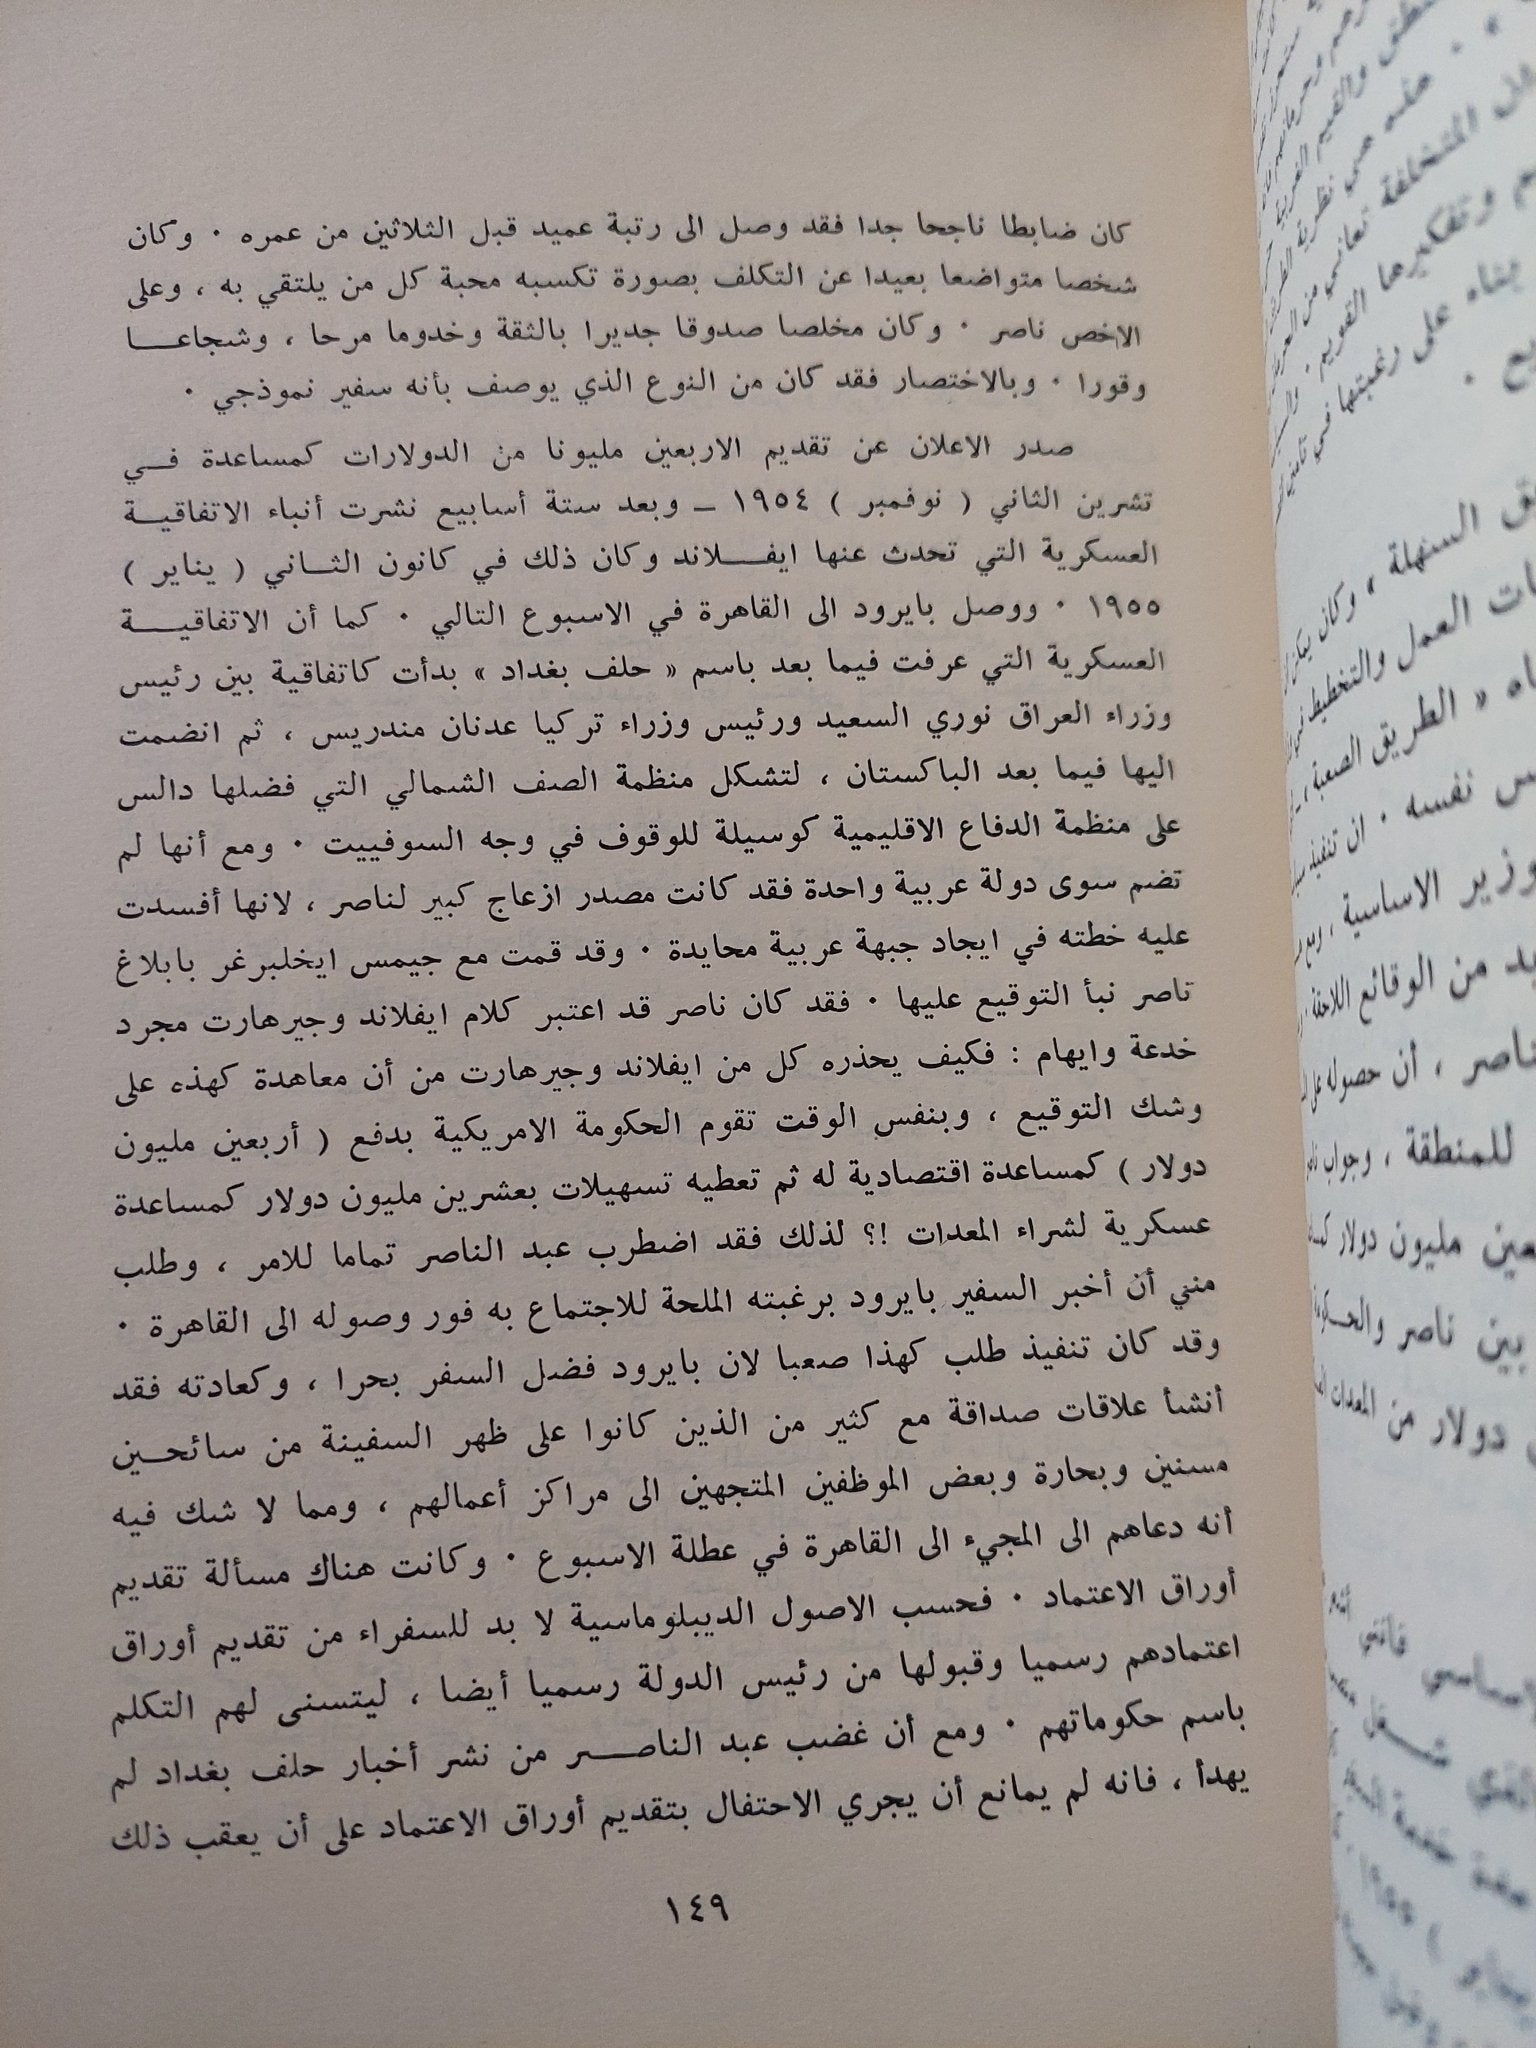 كان ضابطا ناجحا جدا فقد وصل الى رتبة عميد قبل الثلاثين من عمره . وكان
شخصا متواضعا بعيدا عن التكلف بصورة تكسبه محبة كل من يلتقي به ، وعلى
الاخص ناصر . وكان مخلصا صدوقا جديرا بالثقة وخدوما مرحا ، وشجاعا
وقورا . وبالاختصار فقد كان من النوع الذي يوصف بأنه سفير نموذجي .
صدر الاعلان عن تقديم الاربعين مليونا من الدولارات كمساعدة في
تشرين الثاني ( نوفمبر ) ١٩٥٤ – وبعد ستة أسابيع نشرت أنباء الاتفاقية
العسكرية التي تحدث عنها ايفلاند وكان ذلك في كانون الثاني ( يناير )
١٩٥٥ . ووصل بايرود الى القاهرة في الاسبوع التالي . كما أن الاتفاقية
العسكرية التي عرفت فيما بعد باسم « حلف بغداد » بدأت كاتفاقية بين رئيس
وزراء العراق نوري السعيد ورئيس وزراء تركيا عدنان مندريس ، ثم انضمت
اليها فيما بعد الباكستان ، لتشكل منظمة الصف الشمالي التي فضلها دالس
على منظمة الدفاع الاقليمية كوسيلة للوقوف في وجه السوفييت . ومع أنها لم
تضم سوى دولة عربية واحدة فقد كانت مصدر ازعاج كبير لناصر ، لانها أفسدت
عليه خطته في ايجاد جبهة عربية محايدة . وقد قمت مع جيمس ايخلبرغر بابلاغ
ناصر نبأ التوقيع عليها . فقد كان ناصر قد اعتبر كلام ايفلاند وجيرهارت مجرد
خدعة وايهام : فكيف يحذره كل من ايفلاند وجيرهارت من أن معاهدة كهذه على
وشك التوقيع ، وبنفس الوقت تقوم الحكومة الامريكية بدفع ( أربعين مليون
دولار ) كمساعدة اقتصادية له ثم تعطيه تسهيلات بعشرين مليون دولار كمساعدة
عسكرية لشراء المعدات !؟ لذلك فقد اضطرب عبد الناصر تماما للامر ، وطلب
مني أن أخبر السفير بايرود برغبته الملحة للاجتماع به فور وصوله الى القاهرة .
وقد كان تنفيذ طلب كهذا صعبا لان بايرود فضل السفر بحرا ، وكعادته فقد
أنشأ علاقات صداقة مع كثير من الذين كانوا على ظهر السفينة من سائحين
مسنين وبحارة وبعض الموظفين المتجهين الى مراكز أعمالهم ، ومما لا شك فيه
أنه دعاهم الى المجيء الى القاهرة في عطلة الاسبوع . وكانت هناك مسألة تقديم
أوراق الاعتماد . فحسب الاصول الديبلوماسية لا بد للسفراء من تقديم أوراق
اعتمادهم رسميا وقبولها من رئيس الدولة رسميا أيضا ، ليتسنى لهم التكلم
باسم حكوماتهم . ومع أن غضب عبد الناصر من نشر أخبار حلف بغداد لم
يهدأ ، فانه لم يمانع أن يجري الاحتفال بتقديم أوراق الاعتماد على أن يعقب ذلك
١٤٩